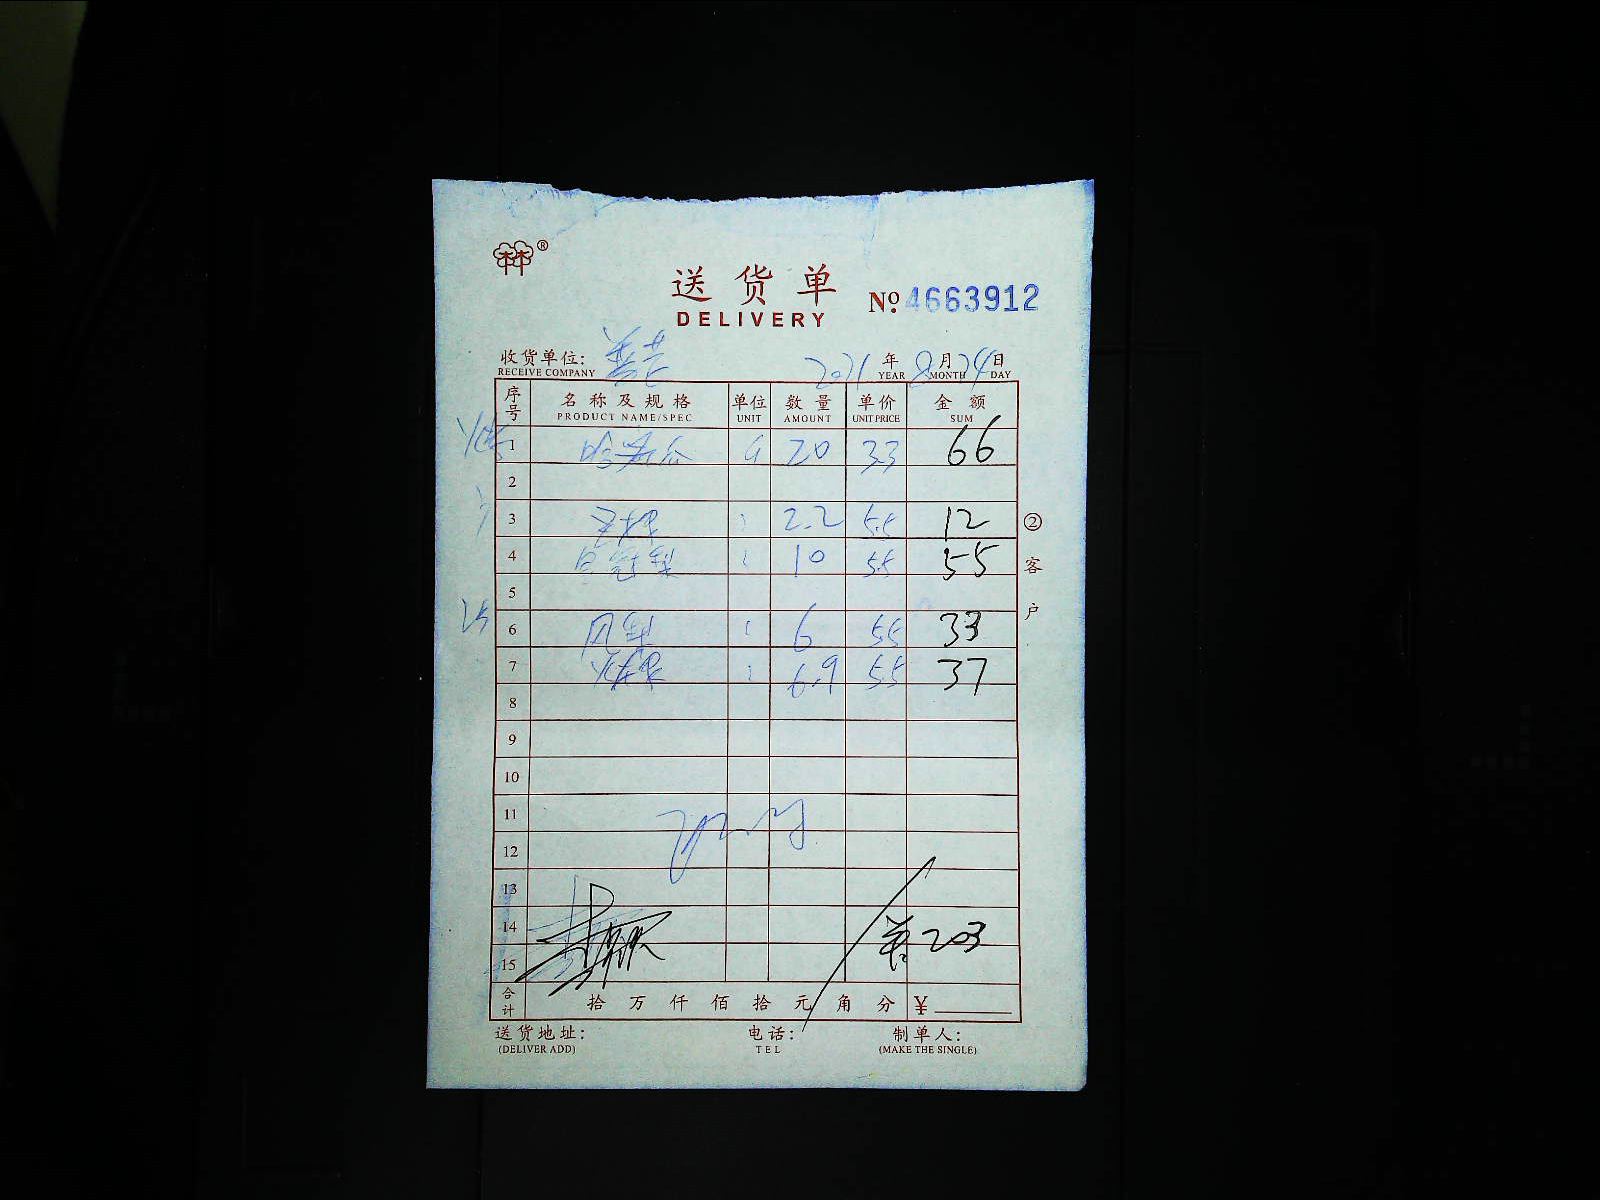 ®
送货单
DELIVERY
№ 4663912
收货单位:
RECEIVE COMPANY
2021 年 8 月 24 日
YEAR MONTH DAY
序号 名称及规格 单位 数量 单价 金额
PRODUCT NAME/SPEC UNIT AMOUNT UNIT PRICE SUM
1 哈密瓜 20 3.3 66
2
3 2.2 5.5 12
4 皇冠梨 10 5.5 55
5
6 6 5.5 33
7 6.9 5.5 37
8
9
10
11
12
13
14 203
15
合计 拾 万 仟 佰 拾 元 角 分 ¥
② 客户
送货地址: 电话: 制单人:
(DELIVER ADD) TEL (MAKE THE SINGLE)